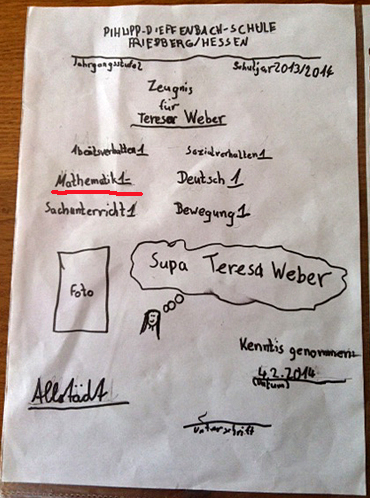 PIHLIPP-DIEFFENBACH-SCHULE
FRIEDBERG/HESSEN
Jahrgangsstufe2 Schuljar2013/2014
Zeugnis
für
Teresa Weber
Abeitsverhalten1 Sozialverhalten1
Mathematik1- Deutsch 1
Sachunterricht1 Bewegung1
Foto
Supa Teresa Weber
Kenntis genommen:
4.2.2014
(Datum)
Allstädt
unterschrift